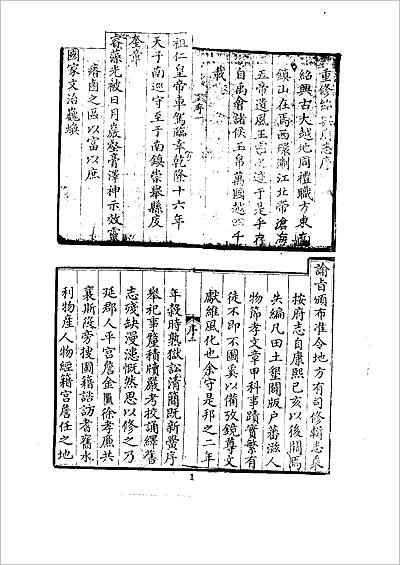 重修紹興府志序
紹興古大越地周禮職方東南
鎮山在焉西環淛江北帶滄海
五帝遺風王言之迹于是乎存
自禹會諸侯玉帛萬國越四千
載
序一
祖仁皇帝車駕臨幸乾隆十六年
天子南巡守至于南鎮崇舉縣庋
奎章
睿藻光被日月巖壑膏澤神示效靈
瘠鹵之區以富以庶
國家文治巍煥
諭旨頒布准令地方有司修輯志乘
按府志自康熙己亥以後闕焉
失編凡田土墾闢版戶蕃滋人
物節孝文章甲科事蹟實繁有
徒不即不圖奚以備攷鏡尊文
獻維風化也余守是邦之二年
序二
年穀時熟獄訟清簡既新黌序
舉祀事釐積牘嚴考校誦繹舊
志殘缺漫漶慨然思以修之乃
延郡人平宮詹金匱徐孝廉共
襄斯役旁搜圖籍諮訪耆舊水
利物產人物經籍宮詹任之地
1